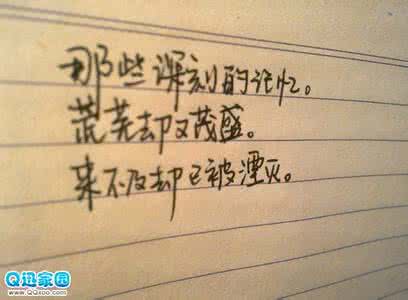 那些深刻的记忆。
荒芜却又茂盛。
来不及却已被湮灭。
QQ迅家园
www.QQxoo.com